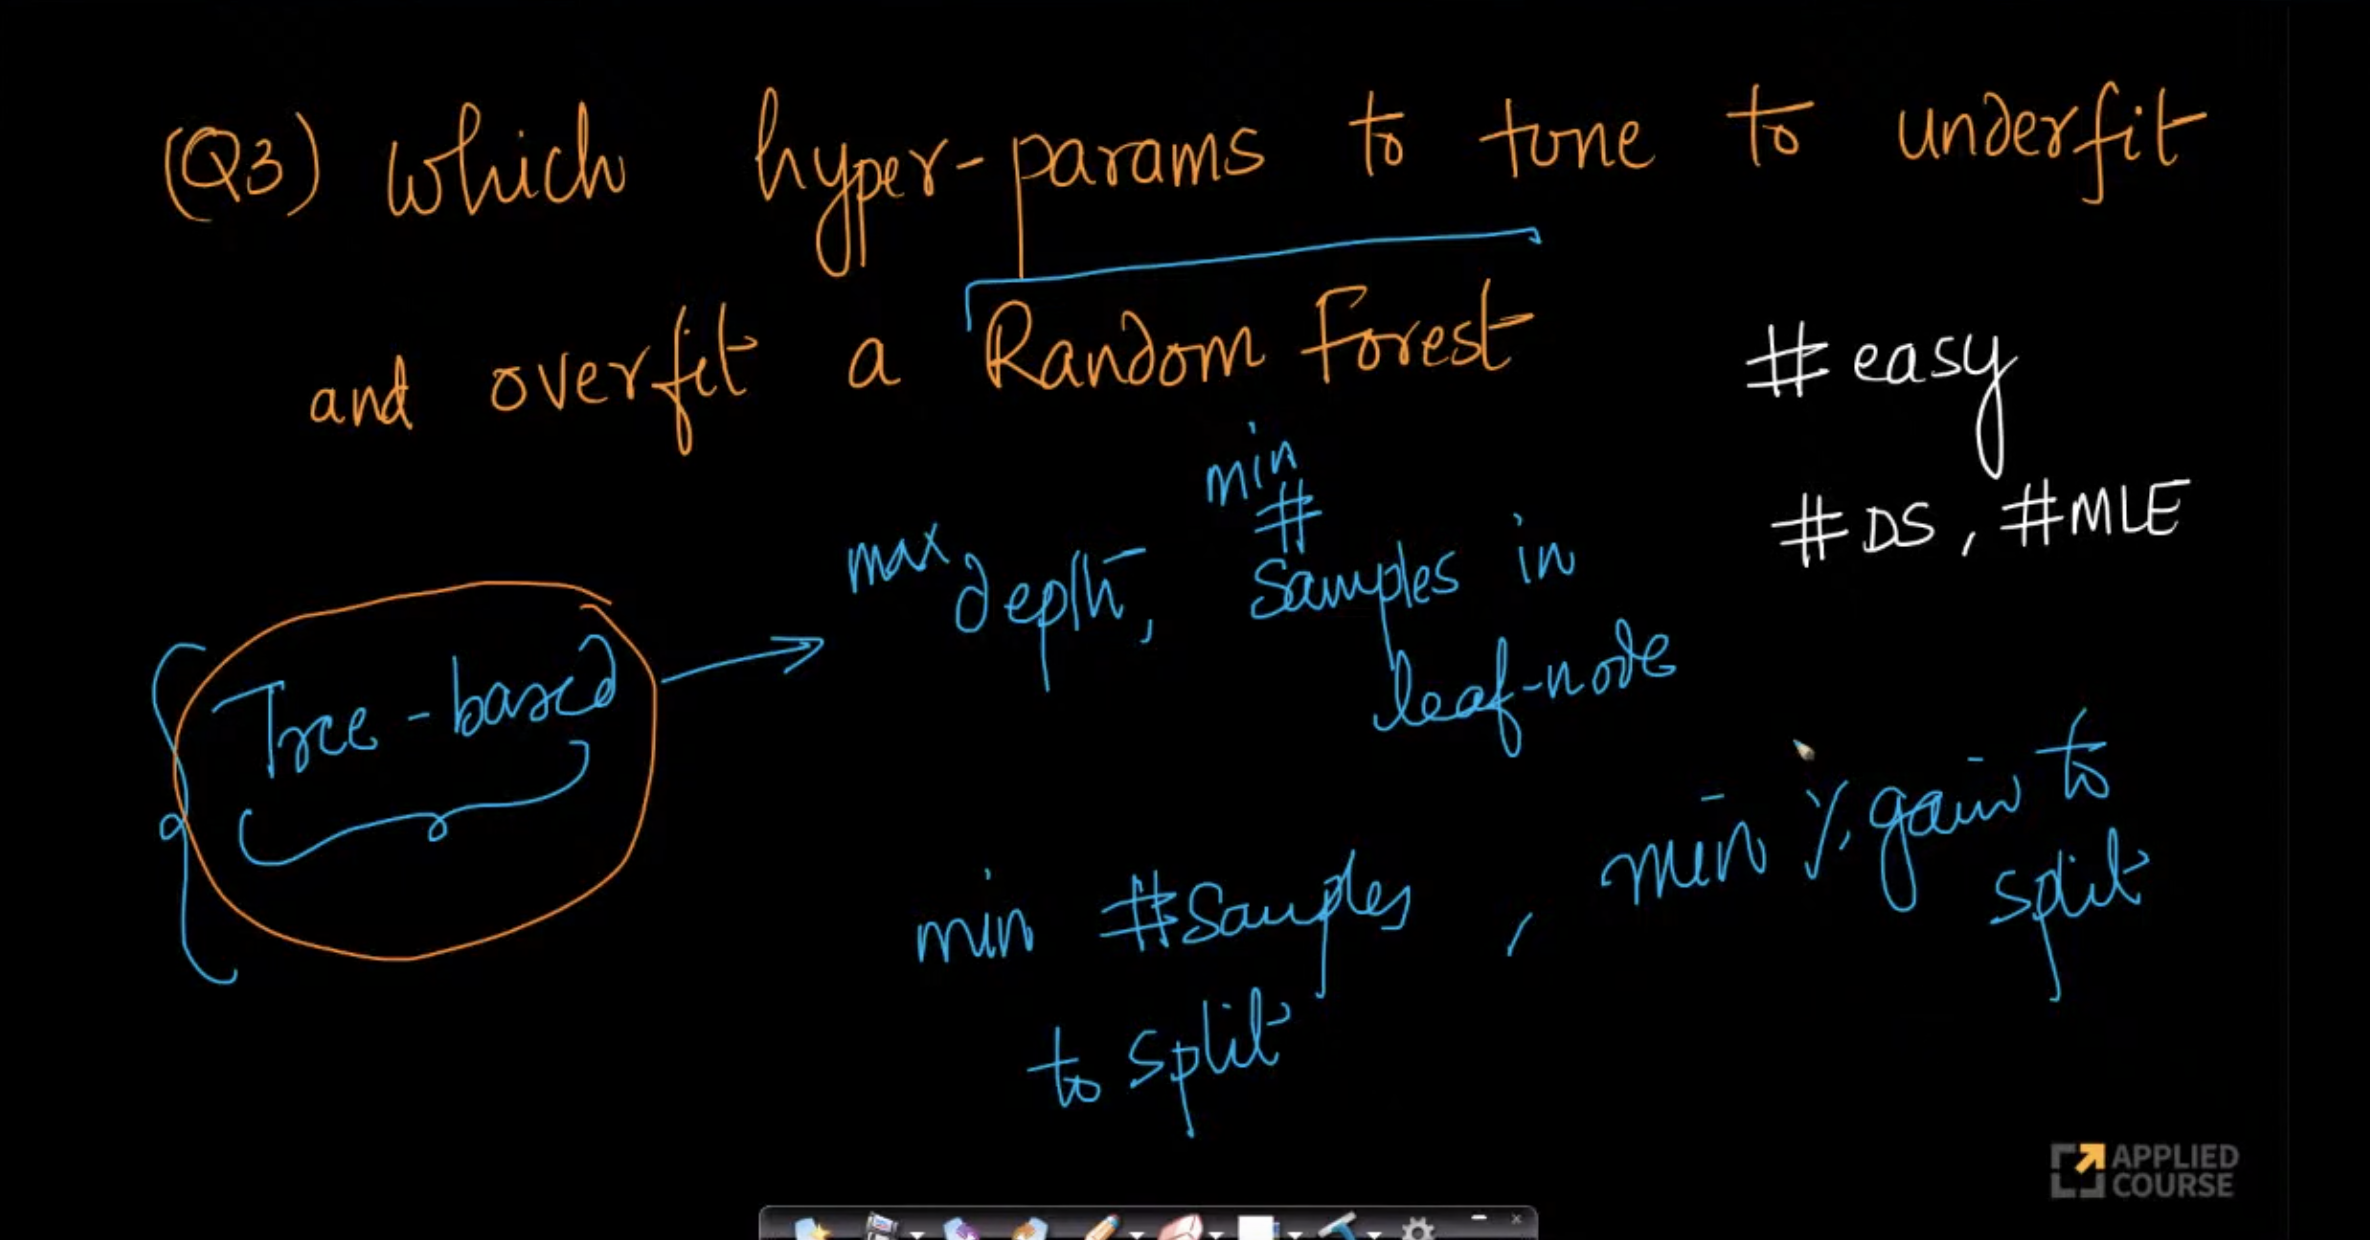 (Q3) which hyper-params to tune to underfit
and overfit a Random Forest
#easy
#DS, #MLE
Tree-based
max depth, min # samples in
leaf-node
min #samples
to split
, min % gain to
split
APPLIED
COURSE